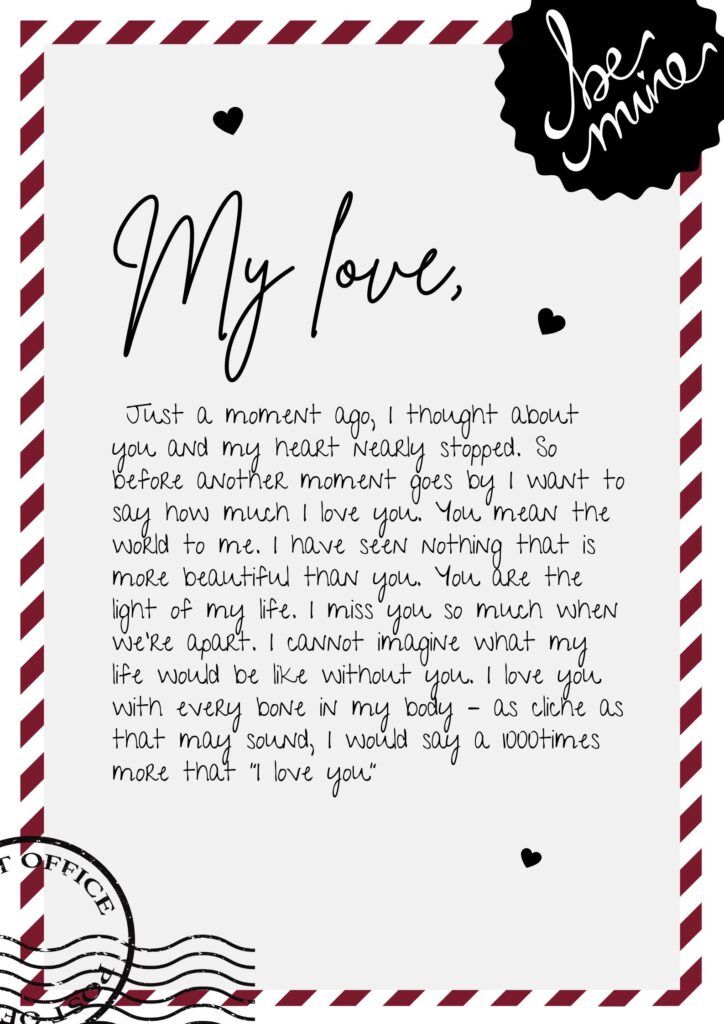 be
mine
My love,
Just a moment ago, I thought about
you and my heart nearly stopped. So
before another moment goes by I want to
say how much I love you. You mean the
world to me. I have seen nothing that is
more beautiful than you. You are the
light of my life. I miss you so much when
we're apart. I cannot imagine what my
life would be like without you. I love you
with every bone in my body - as cliche as
that may sound, I would say a 1000times
more that "I love you"
T OFFICE
POST OF